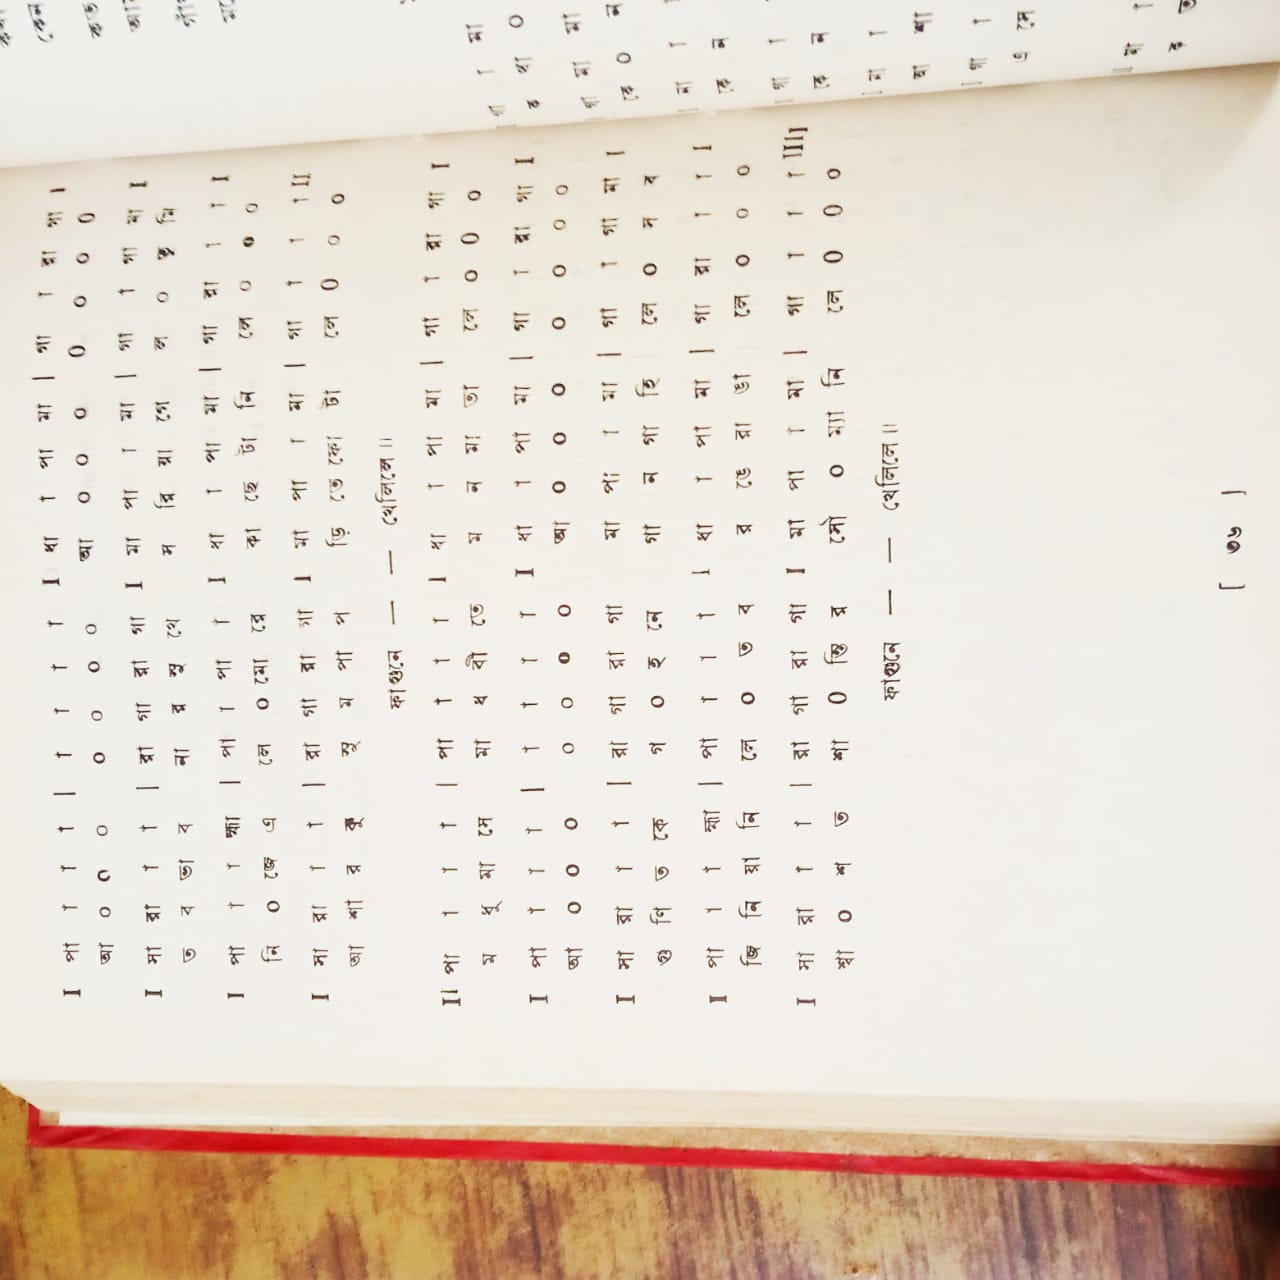 I পা া া া | া া া া I ধা া পা মা | গা া রা গা I
আ ০ ০ ০ ০ ০ ০ ০ আ ০ ০ ০ ০ ০ ০ ০
I সা রা া া | রা গা রা গা I মা পা া মা | গা া গা মা I
ত ব ভা ব না র সু খে স রি য়া গে ল ০ ভূ মি
I পা া া হ্মা | পা া পা া I ধা া পা মা | গা রা া া I
নি ০ জে এ লে ০ মো রে কা ছে টা নি লে ০ ০ ০
I সা রা া া | রা গা রা গা I মা পা া মা | গা া া া II
আ শা র কু সু ম পা প ড়ি তে ফো টা লে ০ ০ ০
ফাগুনে — — খেলিলে॥
II পা া া া | পা া া া I ধা া পা মা | গা া রা গা I
ম ধু মা সে মা ধ বী তে ম ন ম তা লে ০ ০ ০
I পা া া া | া া া া I ধা া পা মা | গা া রা গা I
আ ০ ০ ০ ০ ০ ০ ০ আ ০ ০ ০ ০ ০ ০ ০
I সা রা া া | রা গা রা গা মা পঃ া মা | গা া গা মা I
গু ণি ত কে গ ০ হ নে গা ন গা হি লে ০ ন ব
I পা া া হ্মা | পা া া া I ধা া পা মা | গা রা া া I
জি নি য়া নি লে ০ ত ব র ঙে রা ঙা লে ০ ০ ০
I সা রা া া | রা গা রা গা I মা পা া মা | গা া া া III
শ্বা ০ শ ত শা ০ ন্তি র মৌ ০ ম্যা নি লে ০ ০ ০
ফাগুনে — — খেলিলে॥
[ ৩৬ ]